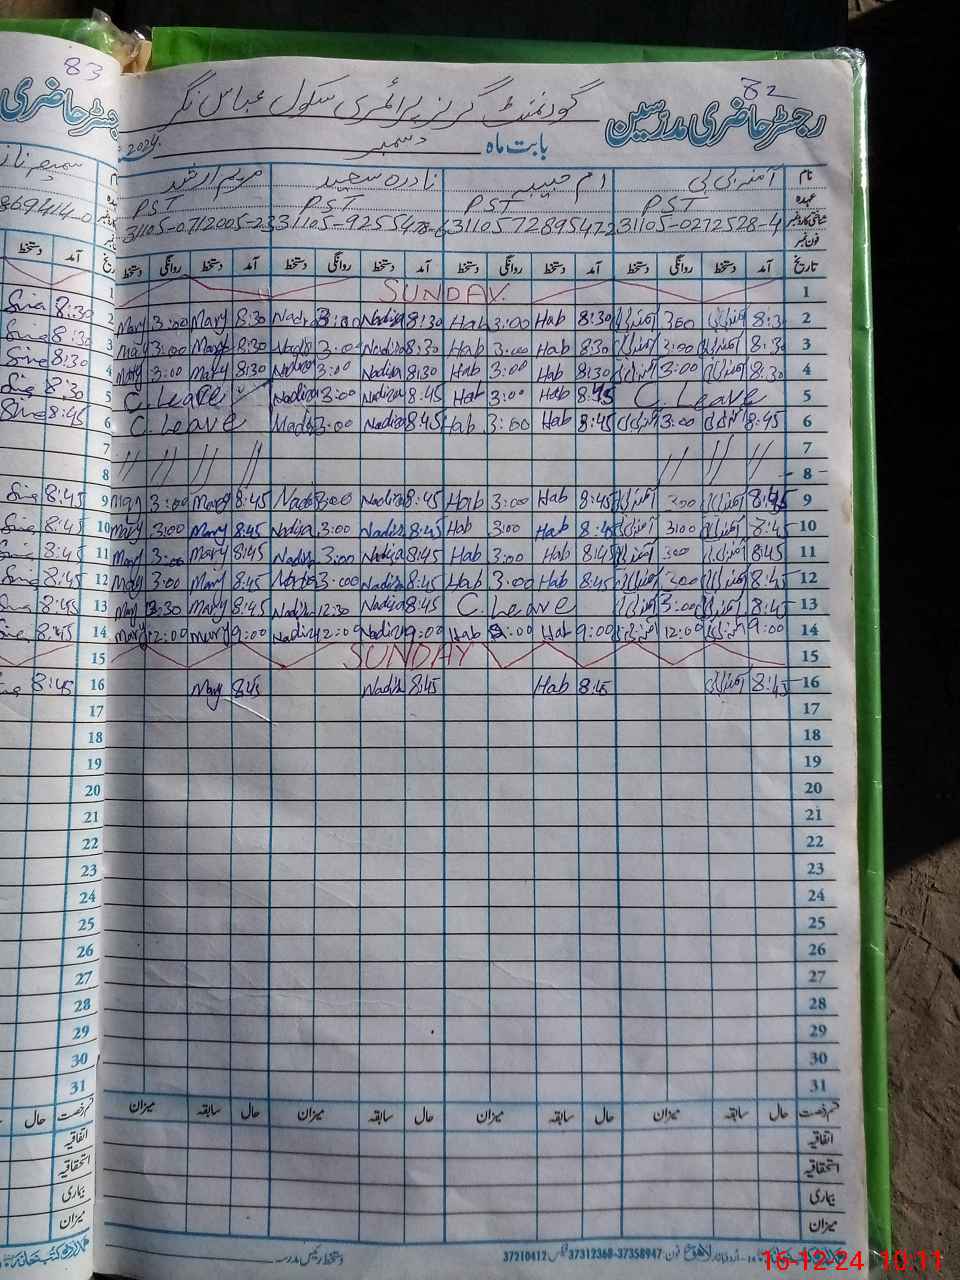 83
82
رجسٹر حاضری مدرسین
گورنمنٹ گرلز پرائمری سکول عباس نگر
بابت ماہ دسمبر 2024
نام آمنہ بی بی ام حبیبہ نادرہ سعید مریم ارشد
عہدہ PST PST PST PST
31105-0272528-4
فون نمبر
تاریخ آمد دستخط روانگی دستخط آمد دستخط روانگی دستخط آمد دستخط روانگی دستخط آمد دستخط روانگی دستخط
1 SUNDAY
Sina 8:30 Mary 3:00 Mary 8:30 Nadira 3:00 Nadira 8:30 Hab 3:00 Hab 8:30 3:00 8:30 2
Sina 8:30 Mary 3:00 Mary 8:30 Nadira 3:00 Nadira 8:30 Hab 3:00 Hab 8:30 3:00 8:30 3
Sina 8:30 Mary 3:00 Mary 8:30 Nadira 3:00 Nadira 8:30 Hab 3:00 Hab 8:30 3:00 8:30 4
Sina 8:30 C.Leave Nadira 3:00 Nadira 8:45 Hab 3:00 Hab 8:45 C.Leave 5
Sina 8:45 C.Leave Nadira 3:00 Nadira 8:45 Hab 3:00 Hab 8:45 3:00 8:45 6
7
8
Sina 8:45 Mary 3:00 Mary 8:45 Nadira 3:00 Nadira 8:45 Hab 3:00 Hab 8:45 3:00 8:45 9
Sina 8:45 Mary 3:00 Mary 8:45 Nadira 3:00 Nadira 8:45 Hab 3:00 Hab 8:45 3:00 8:45 10
Sina 8:45 Mary 3:00 Mary 8:45 Nadira 3:00 Nadira 8:45 Hab 3:00 Hab 8:45 3:00 8:45 11
Sina 8:45 Mary 3:00 Mary 8:45 Nadira 3:00 Nadira 8:45 Hab 3:00 Hab 8:45 3:00 8:45 12
Sina 8:45 Mary Mary 8:45 Nadira 12:30 Nadira 8:45 C.Leave 3:00 8:45 13
Sina 8:45 Mary 12:00 Mary 9:00 Nadira 12:00 Nadira 9:00 Hab Hab 9:00 12:00 9:00 14
SUNDAY 15
8:45 Mary 8:45 Nadira 8:45 Hab 8:45 8:45 16
17
18
19
20
21
22
23
24
25
26
27
28
29
30
31
قسم رخصت حال سابقہ میزان حال سابقہ میزان حال سابقہ میزان حال سابقہ میزان
اتفاقیہ
استحقاقیہ
بیماری
میزان
دستخط رئیس مدرسہ
فون 37312368-37358947 فیکس 37210412
16-12-24 10:11